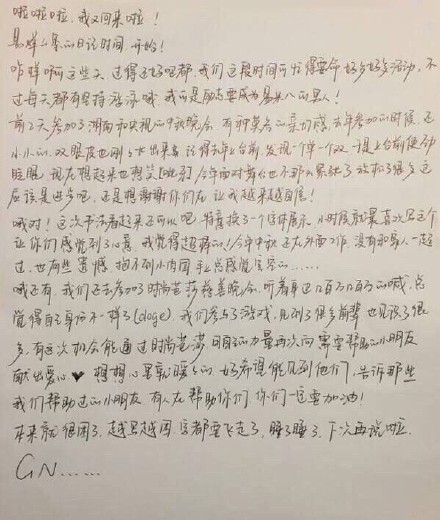 啦啦啦啦，我又回来啦！
易烊千玺的日记时间 开始！
咋样啊这些天 过得还好吧都，我们这段时间可忙得要命 好多好多活动，不
过每天都有坚持游泳哦 我可是励志要成为易米八的男人！
前2天参加了湖南和央视的中秋晚会 有种莫名的亲切感，去年参加的时候 还
小小的，双眼皮也刚 出来 记得去年上台前，发现一个单一个双 于是上台前使劲
眨眼 现在想起来也想笑 今年面对舞台也不那么紧张了 放松了很多 这
应该是进步吧，还是想谢谢你们在 让我越来越自信！
哦对！这次 看起来还可以吧，特意换了一个字体展示 小时候就最喜欢写这个
让你们感觉到了心意 我觉得超棒的！今年中秋 还在外面工作 没有和家人一起
过，也有些遗憾，抱不到小肉团 手上总感觉空空的……
哦还有，我们还去参加了时尚芭莎慈善晚会，听着身边几百万几百万的喊，总
觉得自己身份不一样了(doge)，我们参与了游戏，见到了很多前辈 也见识了很
多，有这次机会能通过时尚芭莎 用自己的力量再次向需要帮助的小朋友
献出爱心❤ 想想心里就暖暖的 好希望能见到他们，告诉那些
我们帮助过的小朋友 有人在帮助你们 你们一定要加油！
本来就很困了，越写越困 字都要飞走了，睡了睡了，下次再说啦
GN……